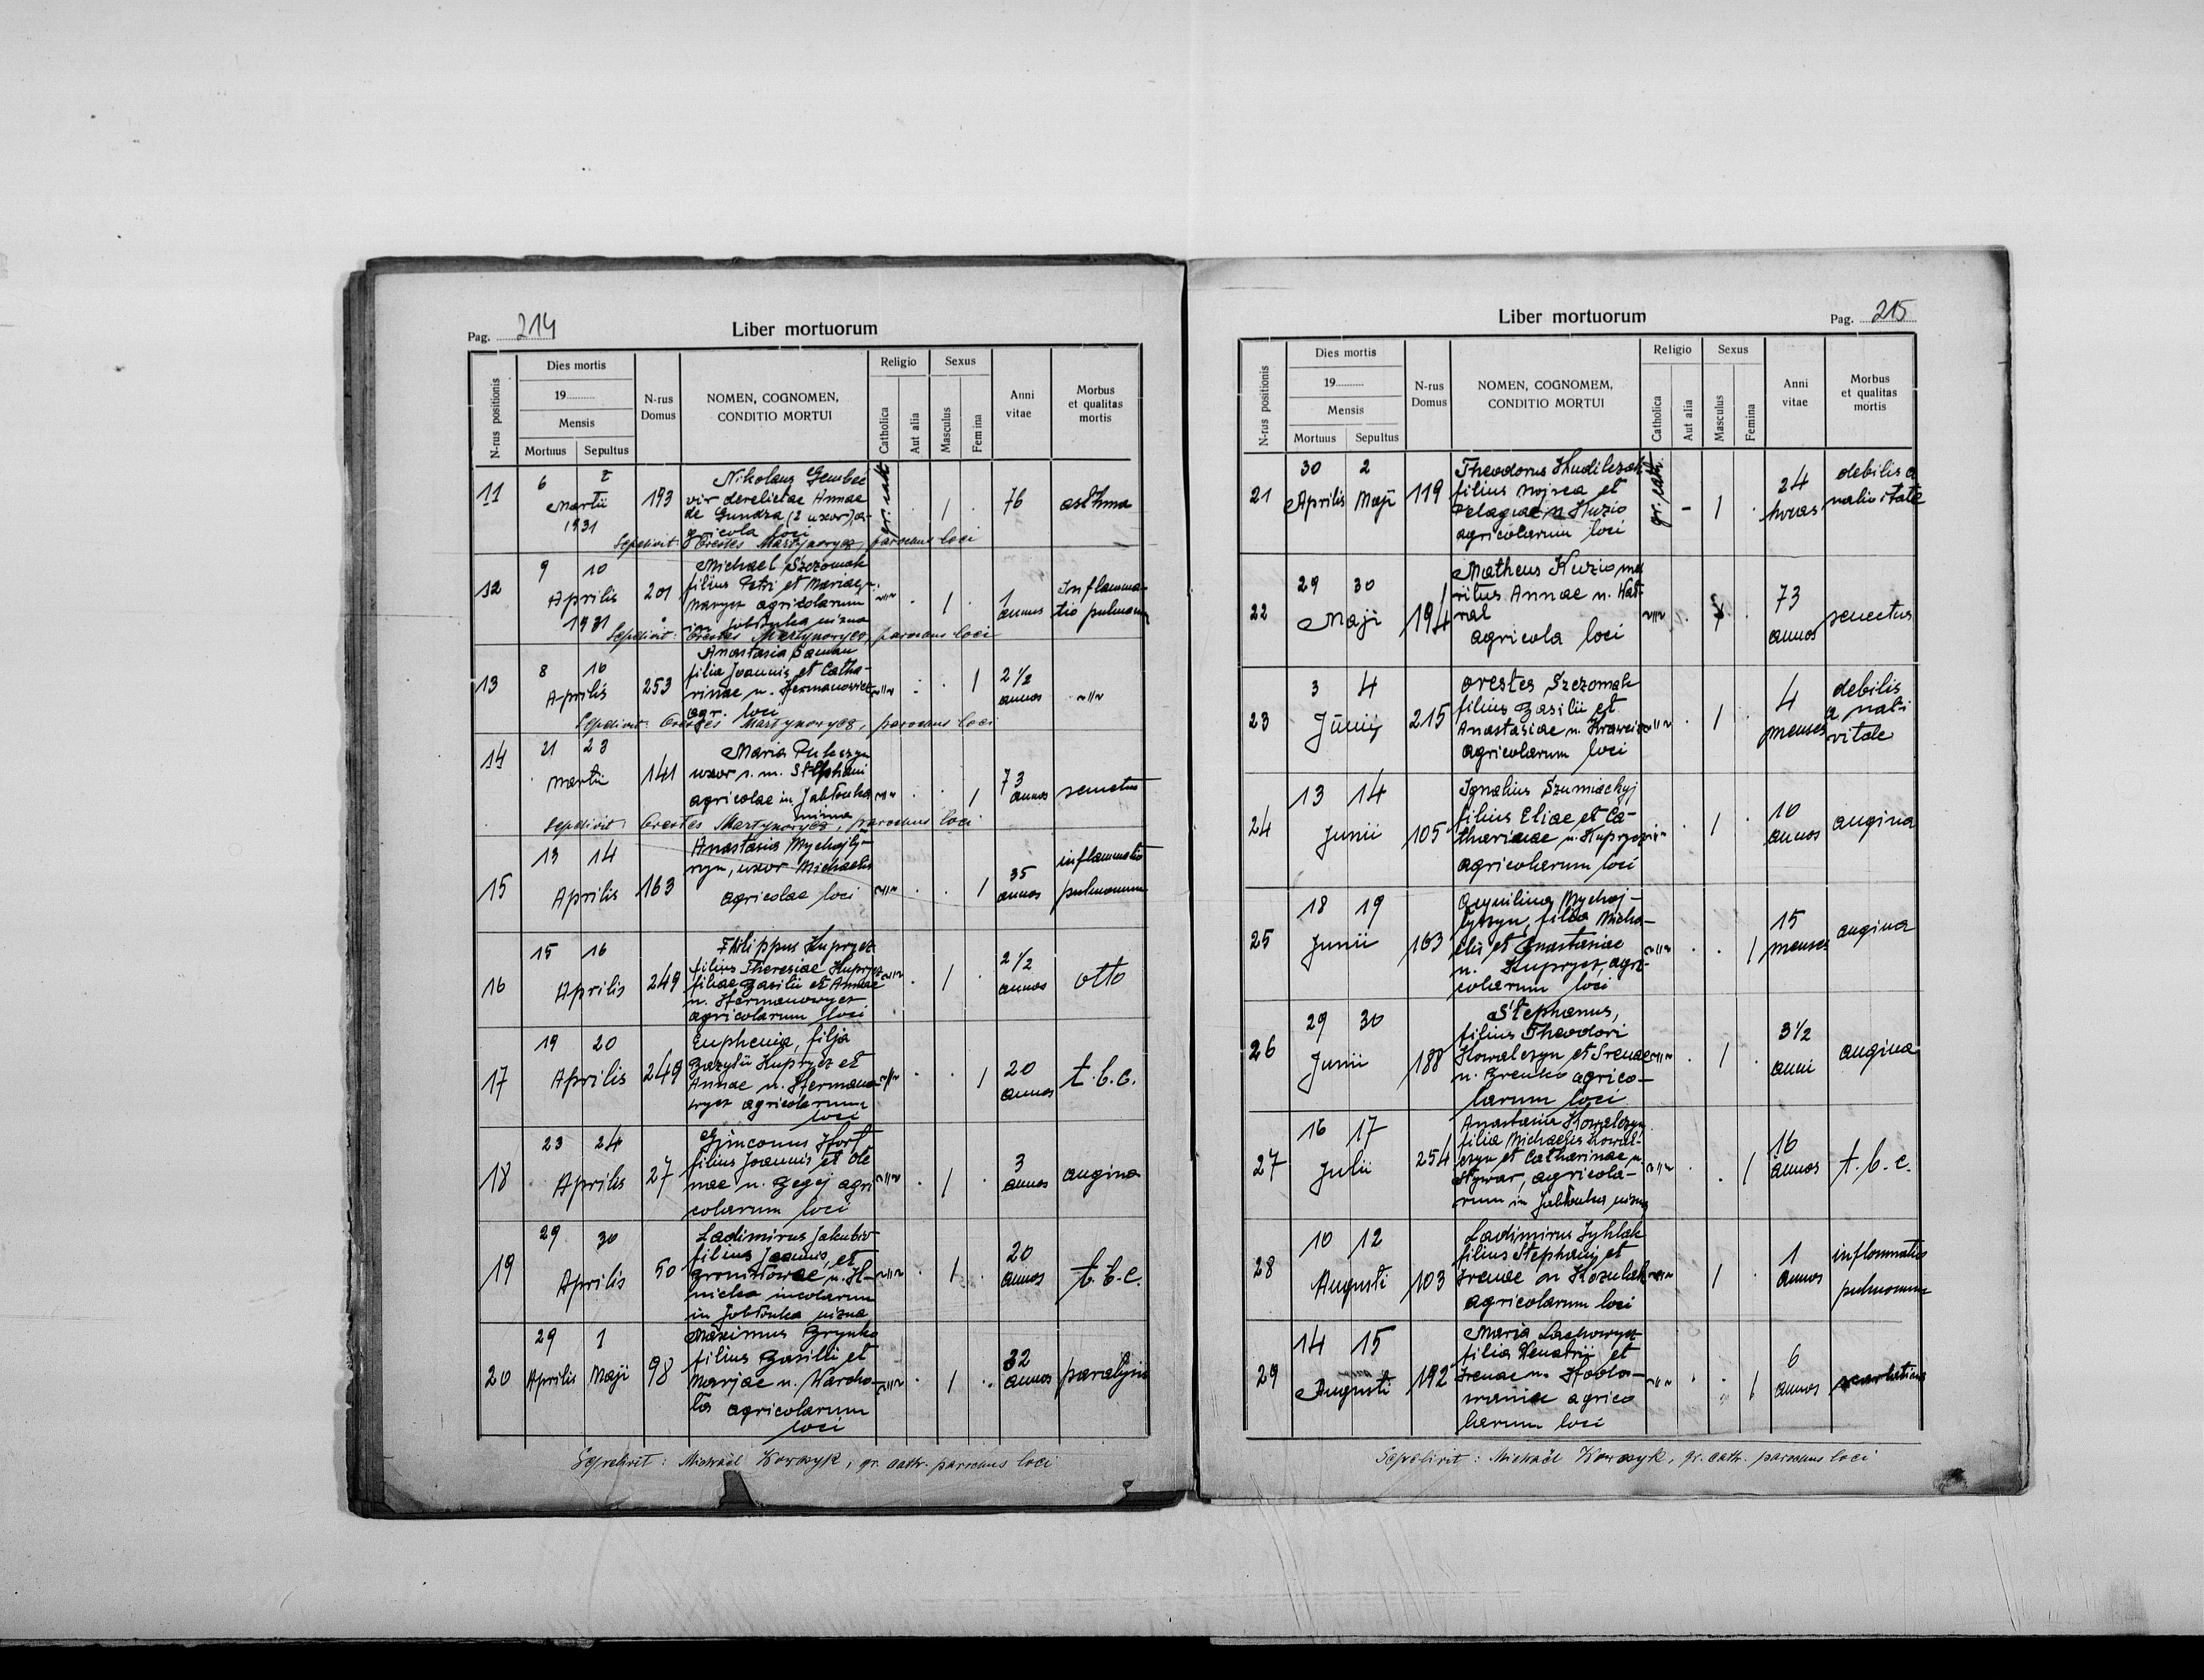 Pag. 214
Liber mortuorum
N-rus positionis
Dies mortis
19
Mensis
Mortuus Sepultus
N-rus Domus
NOMEN, COGNOMEN,
CONDITIO MORTUI
Religio
Catholica
Aut alia
Sexus
Masculus
Femina
Anni vitae
Morbus
et qualitas
mortis
11
6
Martii
1931
193
Nikolaus
vir derelictae Annae
de Gundza (2 uxor), a-
gricola loci
gr. cath
1
76
asthma
Sepelivit: Orestes Martynowycz, parochus loci
12
9 10
Aprilis
1931
201
Michael Szczomak
filius Petri et Mariae n.
agricolarum
in Jabłonka nizna
1
1
annus
Inflamma-
tio pulmonum
Sepelivit: Orestes Martynowycz, parochus loci
13
8 10
Aprilis
253
Anastasia
filia Joannis et Catha-
rinae n. Hermanowicz
agr. loci
1
2 1/2
annos
Sepelivit: Orestes Martynowycz, parochus loci
14
21 23
Martii
141
Maria
uxor Stephani
agricolae in Jabłonka
nizna
1
73
annos
senectus
Sepelivit: Orestes Martynowycz, parochus loci
15
13 14
Aprilis
163
Anastasia Mychajły-
szyn, uxor Michaelis
agricolae loci
1
35
annos
inflammatio
pulmonum
16
15 16
Aprilis
249
Philippus Kuprycz
filius Theresiae Kuprycz
filiae Basilii et Annae
n. Hermanowycz
agricolarum loci
1
2 1/2
annos
otto
17
19 20
Aprilis
249
Euphemia, filja
Bazylii Kuprycz et
Annae n. Hermano-
wycz agricolarum
loci
1
20
annos
t. b. c.
18
23 24
Aprilis
27
filius Joannis et Ole
nae n. Gegej agri
colarum loci
1
3
annos
angina
19
29 30
Aprilis
50
Ladimirus Jakubiw
filius Joannis, et
n. H-
nicka incolarum
in Jabłonka nizna
1
20
annos
t. b. c.
20
29 1
Aprilis Maji
98
Maximus Grynko
filius Basilii et
Marjae n. Warcho-
ła agricolarum
loci
1
32
annos
paralysis
Sepelivit: Michaël Kowzyk, gr. cath. parochus loci
Liber mortuorum
Pag. 215
N-rus positionis
Dies mortis
19
Mensis
Mortuus Sepultus
N-rus Domus
NOMEN, COGNOMEM,
CONDITIO MORTUI
Religio
Catholica
Aut alia
Sexus
Masculus
Femina
Anni vitae
Morbus
et qualitas
mortis
21
30 2
Aprilis Maji
119
Theodorus Hudilczak
filius et
Pelagiae n. Kuzio
agricolarum loci
gr. cath.
1
24
horas
debilis a
nativitate
22
29 30
Maji
194
Matheus Kuzio ma
ritus Annae n. Kat-
ral
agricola loci
73
annos
senectus
23
3 4
Junij
215
Orestes Szczomak
filius Basilii et
Anastasiae n.
agricolarum loci
1
4
menses
debilis
a nati
vitate
24
13 14
Junii
105
Ignatius Szumiackyj
filius Eliae et Ca-
tharinae n. Kuprycz
agricolarum loci
1
10
annos
angina
25
18 19
Junii
163
Aquilina Mychaj-
łyszyn, filia Micha-
elis et Anastasiae
n. Kuprycz, agri-
colarum loci
1
15
menses
angina
26
29 30
Junii
188
Stephanus,
filius Theodori
Kowalczyn et Irenae
n. Grenko agrico-
larum loci
1
3 1/2
anni
angina
27
16 17
Julii
254
Anastasia Kowalczyn
filia Michaelis Kowal-
czyn et Catharinae n.
agricola-
rum in Jabłonka nizna
1
16
annos
t. b. c.
28
10 12
Augusti
103
Ladimirus
filius Stephani et
Irenae n.
agricolarum loci
1
1
annos
inflammatio
pulmonum
29
14 15
Augusti
192
Maria Lachowycz
filia et
Irenae n. Hoło-
agrico
larum loci
1
6
annos
Sepelivit: Michaël Kowzyk, gr. cath. parochus loci